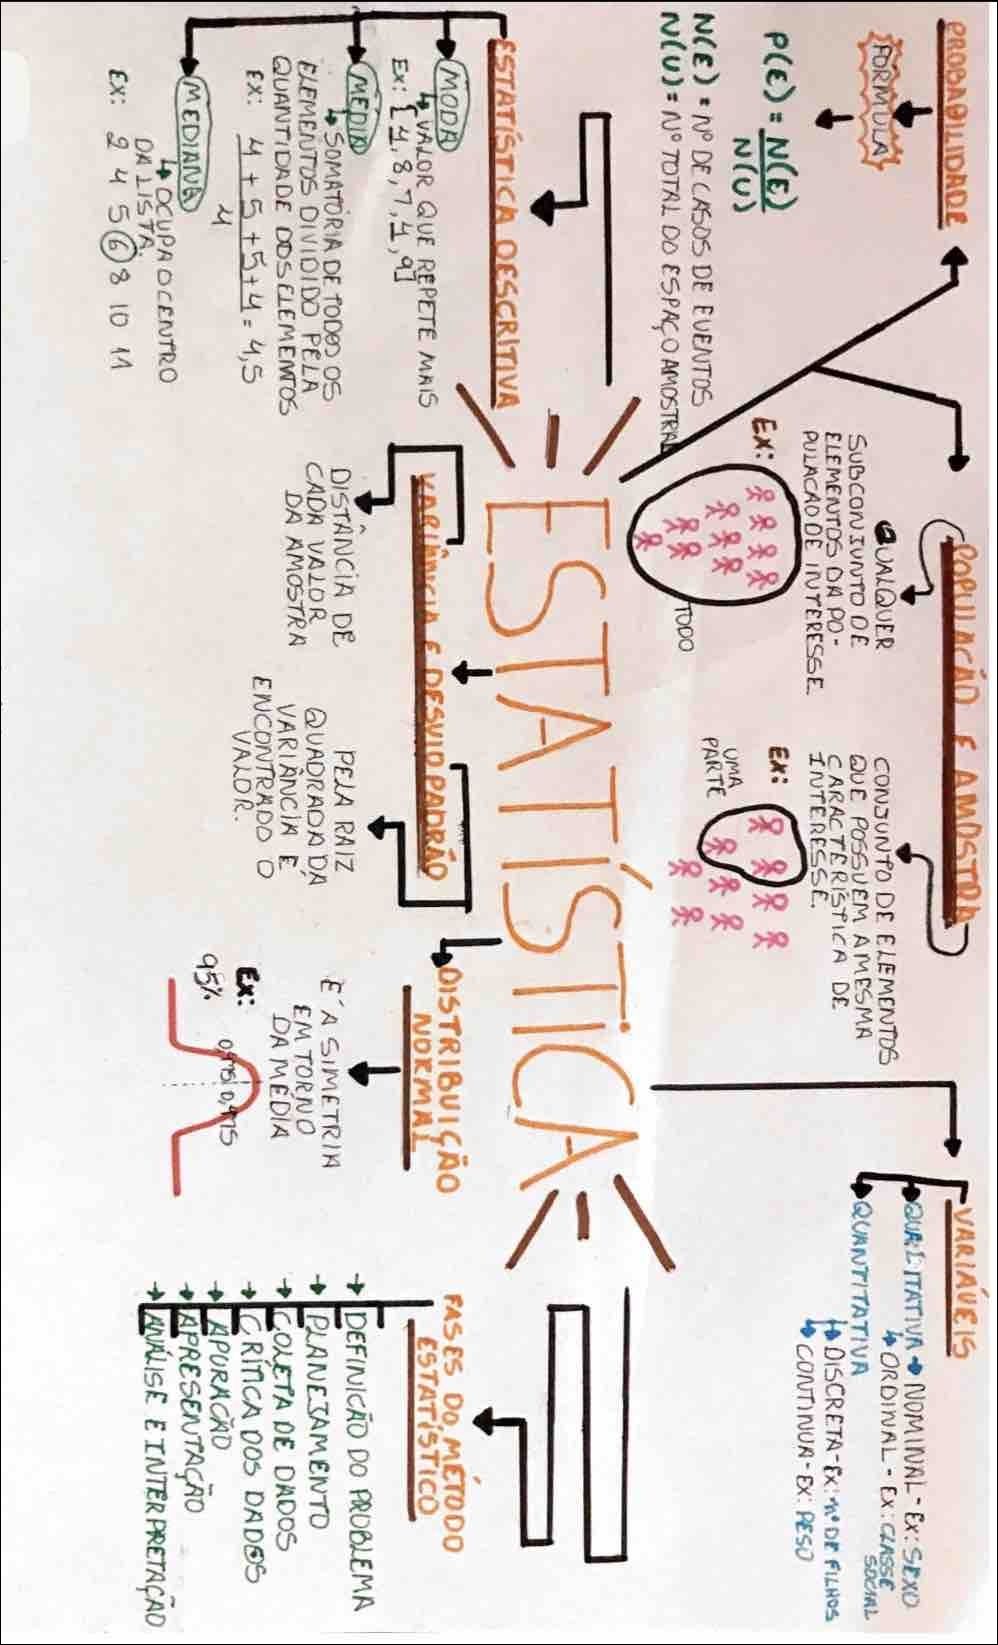 PROBABILIDADE
FÓRMULA
P(E) = N(E)
N(U)
N(E) = Nº DE CASOS DE EVENTOS
N(U) = Nº TOTAL DO ESPAÇO AMOSTRAL
POPULAÇÃO E AMOSTRA
QUALQUER
SUBCONJUNTO DE
ELEMENTOS DA PO-
PULAÇÃO DE INTERESSE.
EX:
TODO
CONJUNTO DE ELEMENTOS
QUE POSSUEM A MESMA
CARACTERÍSTICA DE
INTERESSE.
EX:
UMA
PARTE
VARIÁVEIS
QUALITATIVA → NOMINAL - EX: SEXO
↳ ORDINAL - EX: CLASSE
SOCIAL
QUANTITATIVA
↳ DISCRETA - EX: nº DE FILHOS
↳ CONTINUA - EX: PESO
ESTATÍSTICA
ESTATÍSTICA DESCRITIVA
MODA
↳ VALOR QUE REPETE MAIS
EX: {1, 8, 7, 1, 9}
MÉDIA
↳ SOMATÓRIA DE TODOS OS
ELEMENTOS DIVIDIDO PELA
QUANTIDADE DOS ELEMENTOS
EX: 4 + 5 + 5 + 4 = 4,5
4
MEDIANA
↳ OCUPA O CENTRO
DA LISTA.
EX: 2 4 5 6 8 10 11
VARIÂNCIA E DESVIO PADRÃO
DISTÂNCIA DE
CADA VALOR
DA AMOSTRA
PELA RAIZ
QUADRADA DA
VARIÂNCIA É
ENCONTRADO O
VALOR.
DISTRIBUIÇÃO
NORMAL
É A SIMETRIA
EM TORNO
DA MÉDIA
EX:
95%
0,475 0,475
FASES DO MÉTODO
ESTATÍSTICO
→ DEFINIÇÃO DO PROBLEMA
→ PLANEJAMENTO
→ COLETA DE DADOS
→ CRÍTICA DOS DADOS
→ APURAÇÃO
→ APRESENTAÇÃO
→ ANÁLISE E INTERPRETAÇÃO